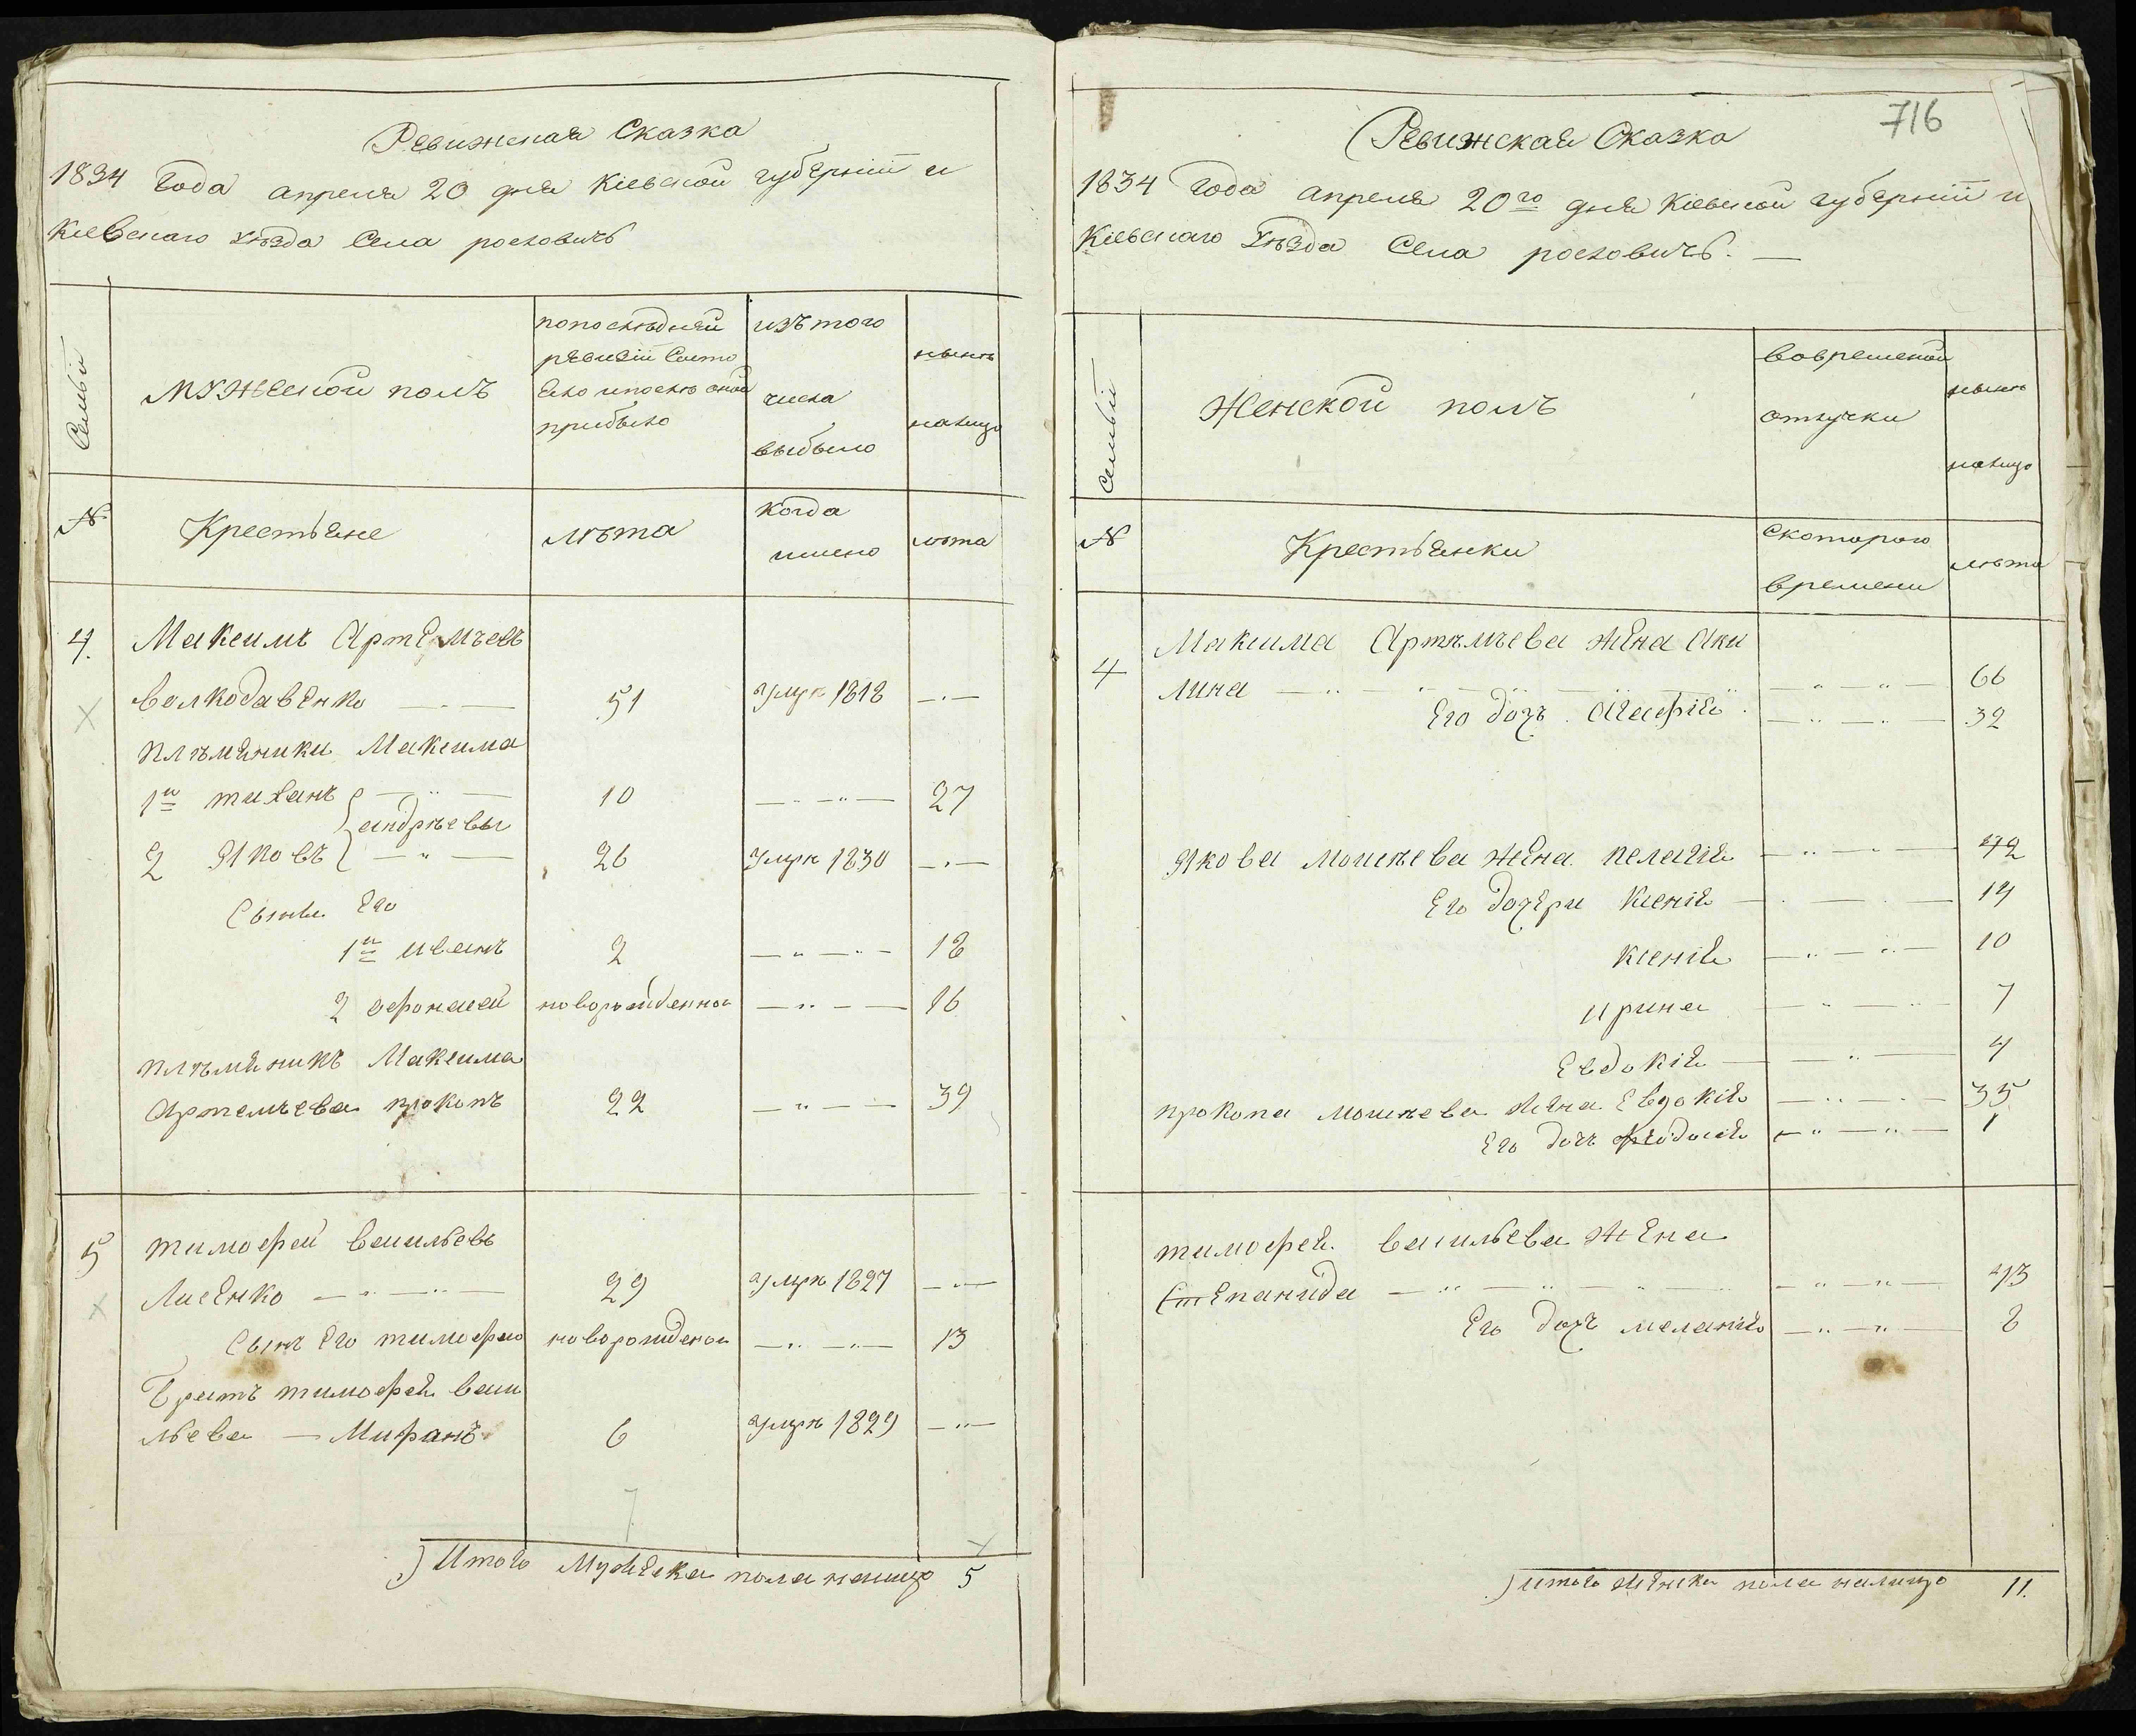 Ревижская Сказка
1834 Года апреля 20 дня Кіевской губерніи и
Кіевскаго уѣзда Села роховичъ
Семьи
мужеской полъ
попослѣдней
ревизіи Состо
Ело ипослѣ оной
прибыло
изъ того
числа
выбыло
нынѣ
налицо
№
Крестьяне
лѣта
когда
имено
лѣта
4.
Максимъ Артемьевъ
волкодавенко 51 умре 1818
племяники Максима
1й тиханъ 10 27
андрѣевы
2 Яковъ 26 умре 1830
Сыны Его
1й иванъ 2 18
2 афонасей новорожденной 16
племяникъ Максима
Артемьева прокопъ 22 39
5
тимофей васильевъ
Лисенко 29 умре 1827
Сынъ Его тимофей новорожденой 13
Братъ тимофея васи
льева Мифанъ 6 умре 1829
7
Итого Мужеска пола налицо 5
716
Ревижская Сказка
1834 Года апреля 20го дня Кіевской губерніи и
Кіевскаго уѣзда Села роховичъ.
Семьи
Женской полъ
вовременой
отлучки
нынѣ
налицо
№
Крестьянки
Скоторого
времени
лѣта
4
Максима Артемьева жена Аки
лина 66
Его дочь Агафія 32
Якова моисеева жена пелагія 42
Его дочери Ксенія 14
Ксенія 10
ирина 7
Евдокія 4
прокопа моисеева жена Евдокія 35
Его дочь феодосія 1
тимофея васильева жена
Степанида 43
Его дочь меланія 8
итого женска пола налицо 11.